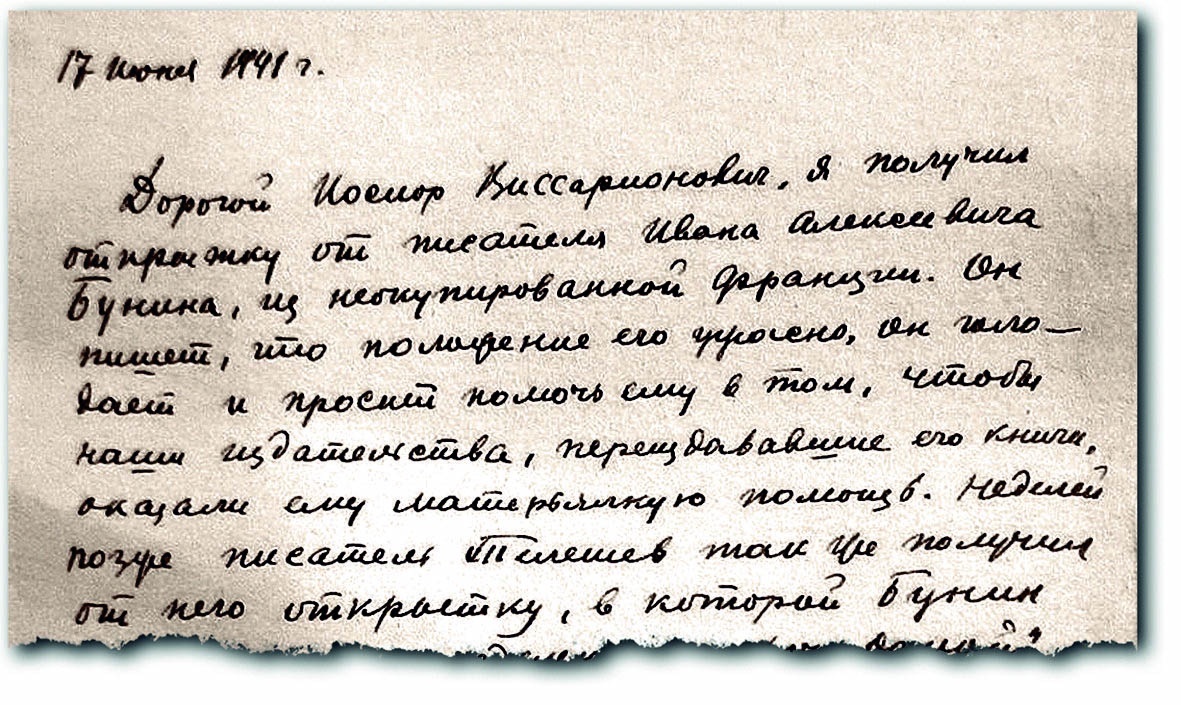 17 июня 1941 г.
Дорогой Иосиф Виссарионович, я получил
открытку от писателя Ивана Алексеевича
Бунина, из неокупированной Франции. Он
пишет, что положение его ужасно, он голо-
дает и просит помочь ему в том, чтобы
наши издательства, переиздававшие его книги,
оказали ему матерьялную помощь. Неделей
позже писатель Телешев так же получил
от него открытку, в которой Бунин